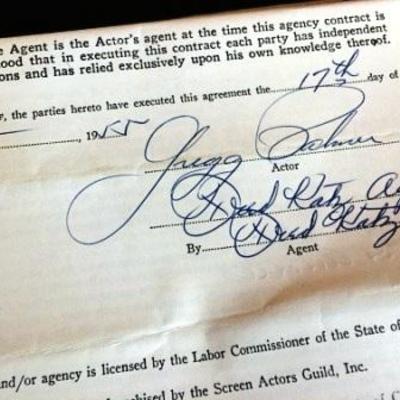 e Agent is the Actor's agent at the time this agency contract is
ood that in executing this contract each party has independent
ons and has relied exclusively upon his own knowledge thereof.
, the parties hereto have executed this agreement the 17th day of
, 1955
Gregg Palmer
Actor
Fred Katz Ag
By Fred Katz
Agent
and/or agency is licensed by the Labor Commissioner of the State of
chised by the Screen Actors Guild, Inc.